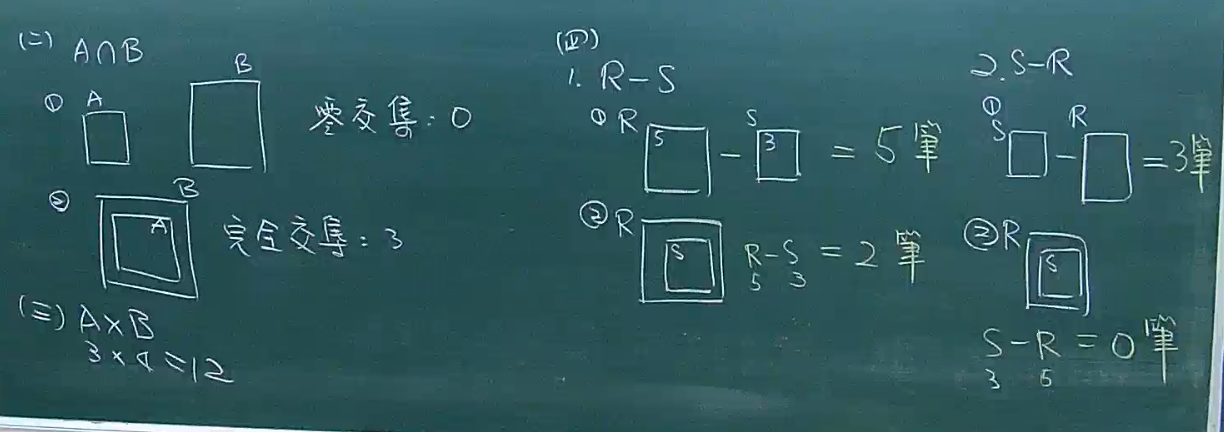 (二) A∩B
① A B 零交集:0
② B A 完全交集:3
(三) A×B
3×4=12
(四)
1. R-S
① R 5 - S 3 = 5筆
② R S R-S = 2筆
5 3
2. S-R
① S - R = 3筆
② R S
S-R = 0筆
3 5